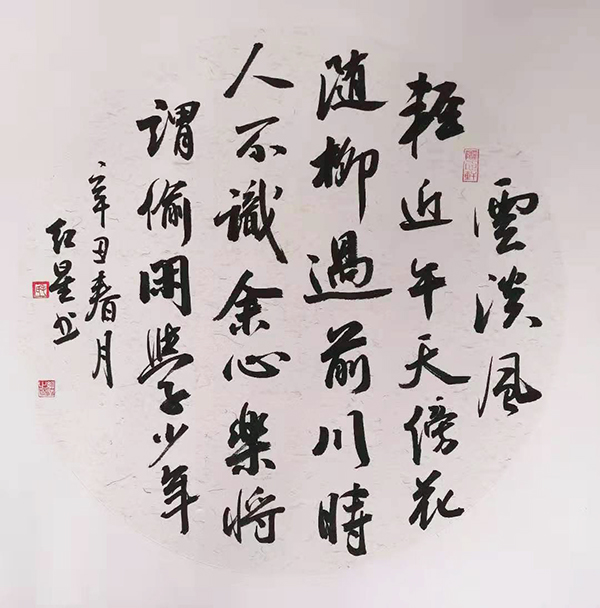 雲淡風
輕近午天傍花
随柳過前川時
人不識余心樂將
謂偷閑學少年
辛丑春月
紅星书